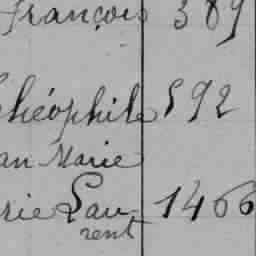 françois 389
théophile 592
an Marie
rie Lau- 1466
rent